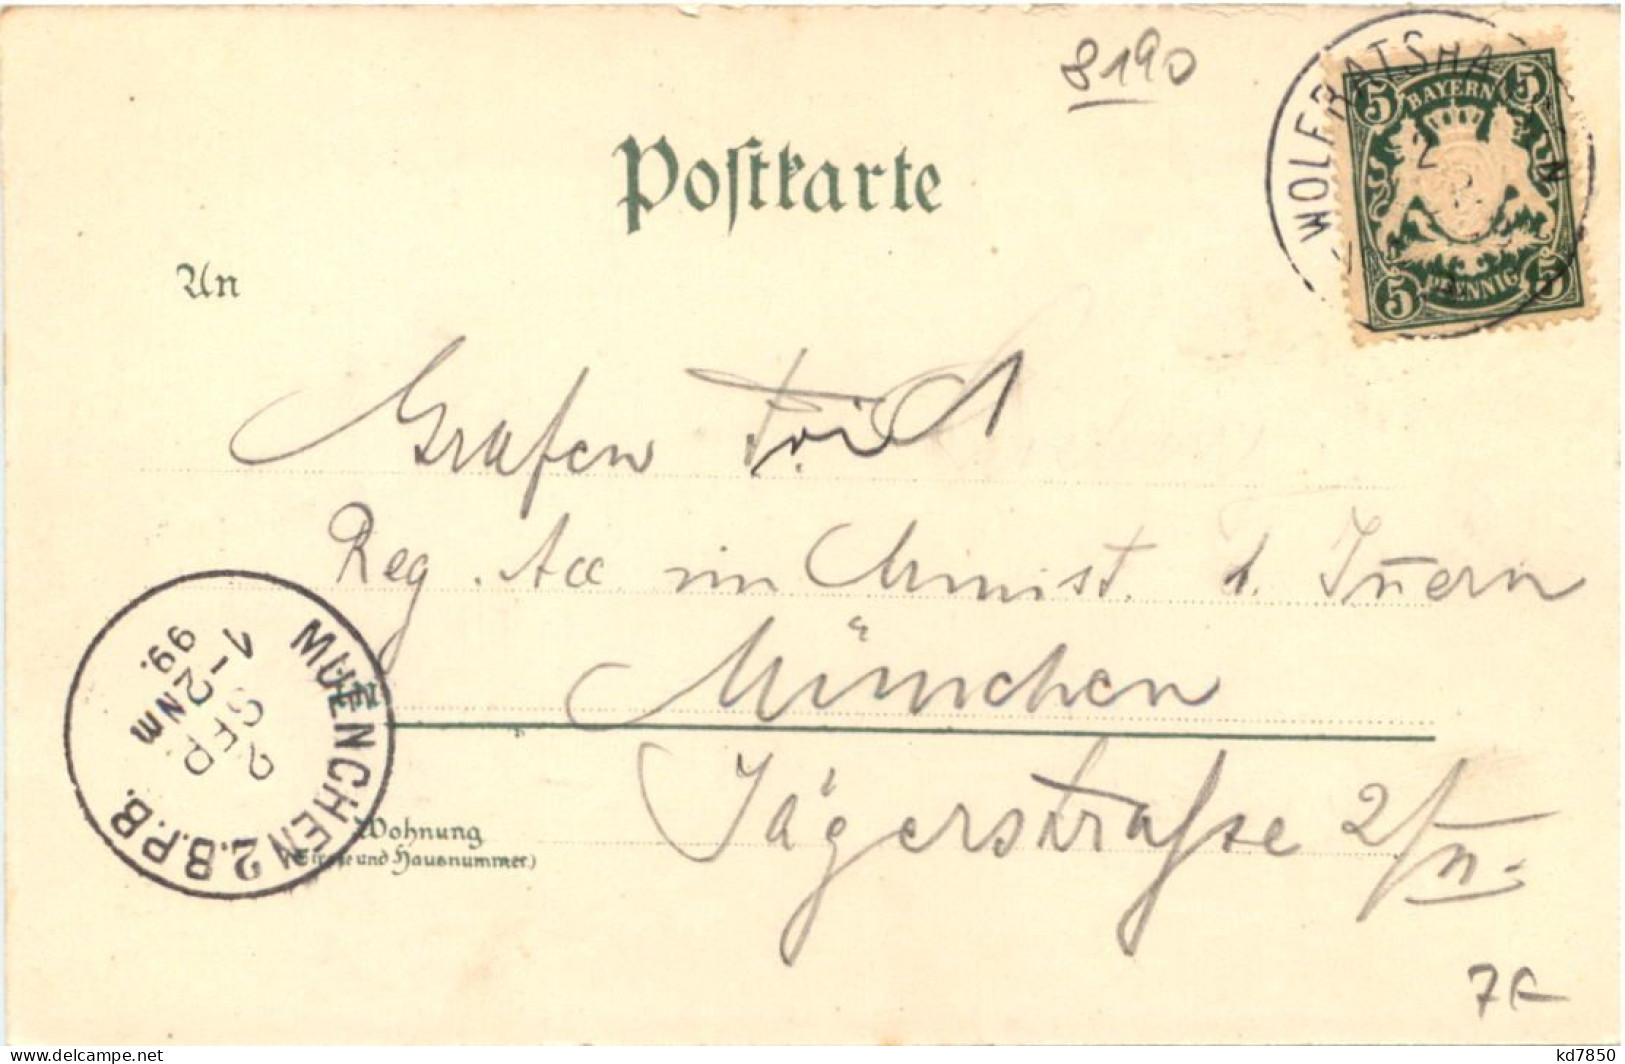 8190
WOLFRATSHA N
2
5 BAYERN 5
5 PFENNIG 5
Postkarte
An
Grafen
Reg. Acc im Minist. d. Innern
München
Jägerstraße 2/II.
Wohnung
(Strasse und Hausnummer.)
MUENCHEN 2.B.P.B.
2 SEP.
1-2 NM
99.
7.-
www.delcampe.net
kd7850